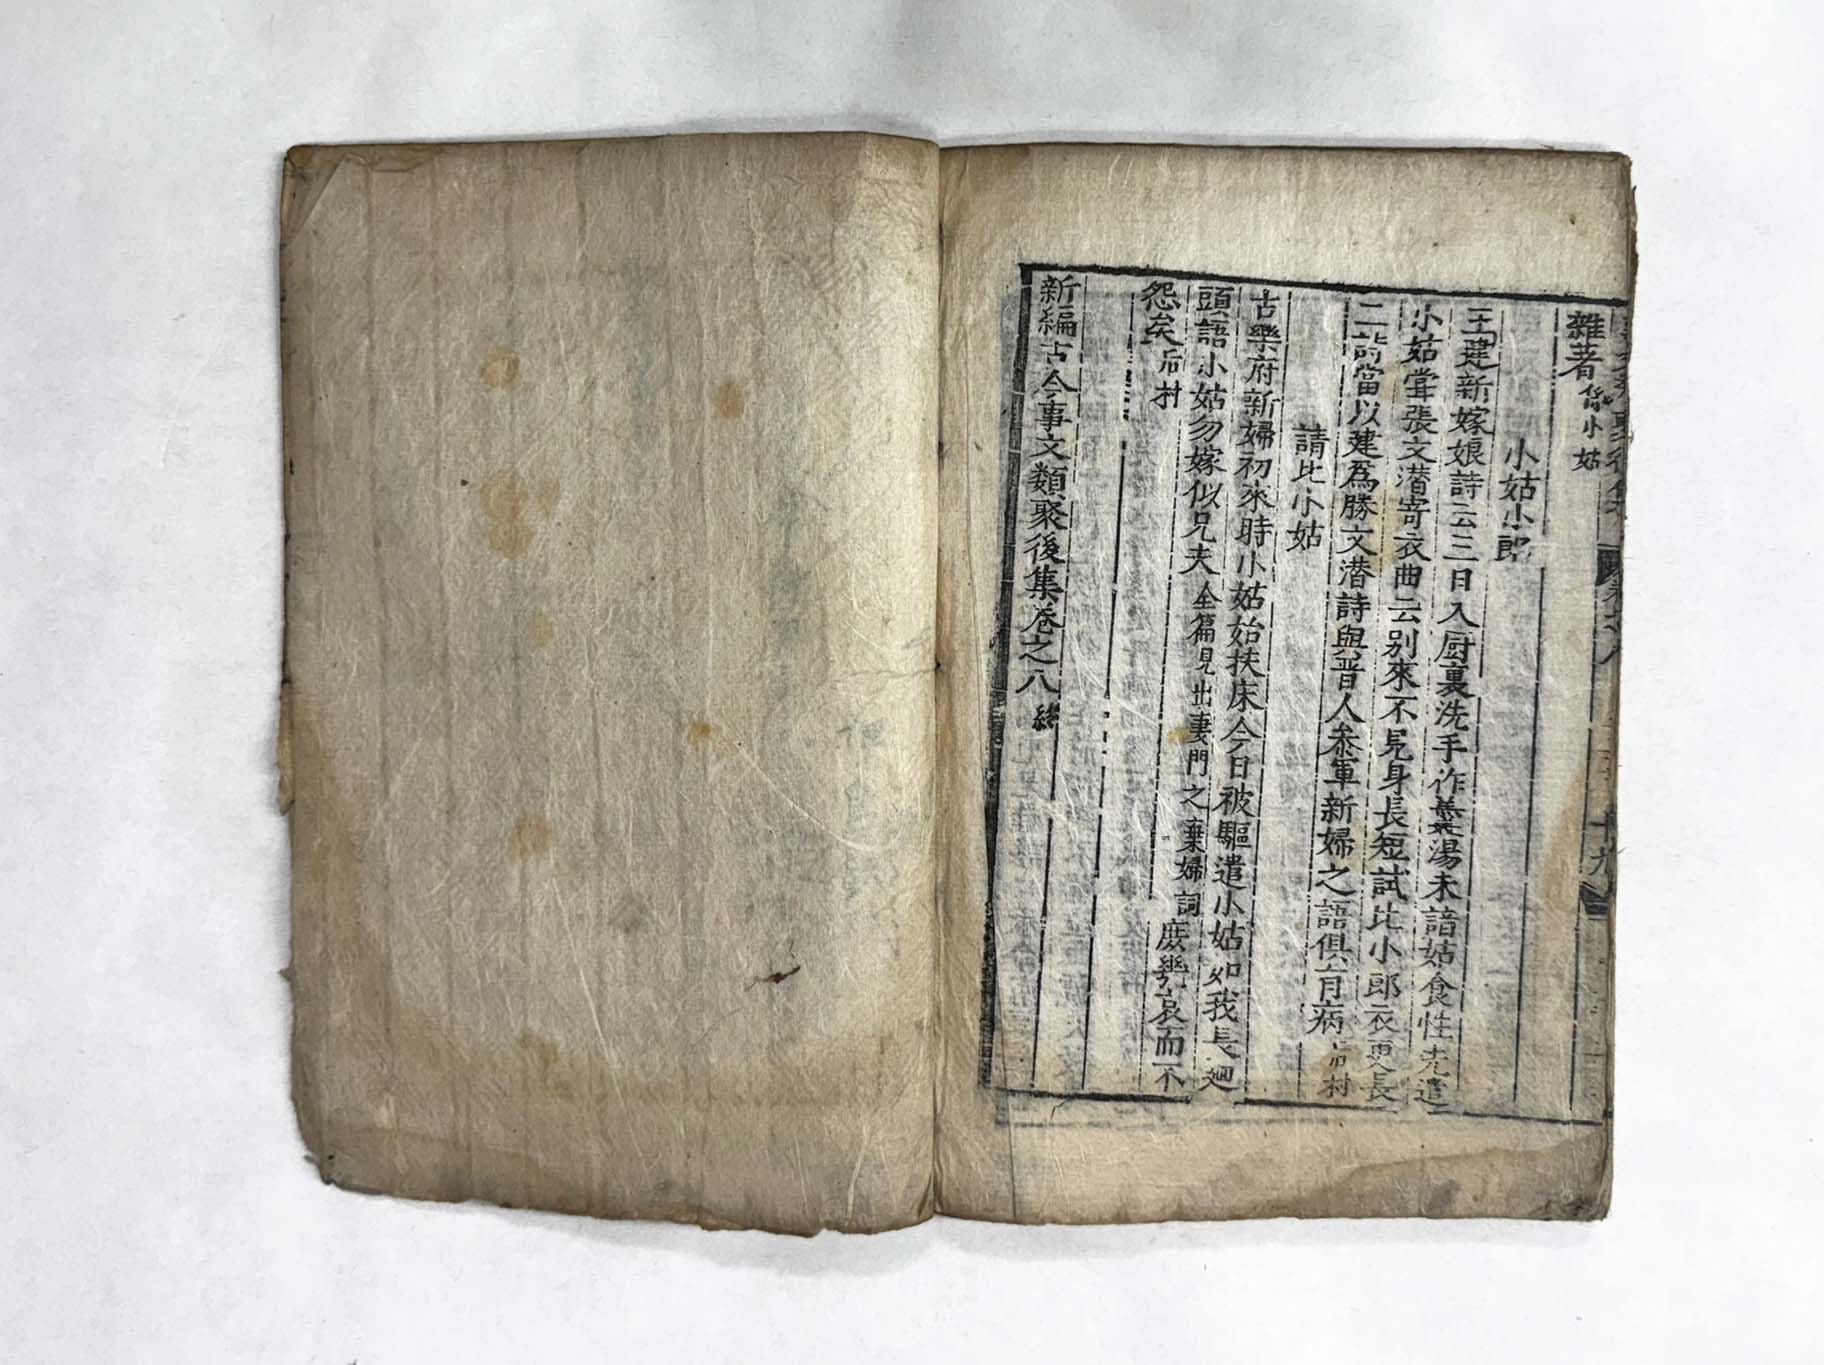 雜著 小姑
小姑小郎
王建新嫁娘詩云三日入厨裏洗手作羹湯未諳姑食性先遣
小姑甞張文潜寄衣曲云别來不見身長短試比小郎衣更長
二詩當以建爲勝文潜詩與晋人叅軍新婦之語俱有病 后村
請比小姑
古樂府新婦初來時小姑始扶床今日被驅遣小姑如我長廻
頭語小姑勿嫁似兄夫 全篇見出妻門之棄婦詞 庶㡬哀而不
怨矣 后村
新編古今事文類聚後集卷之八 終